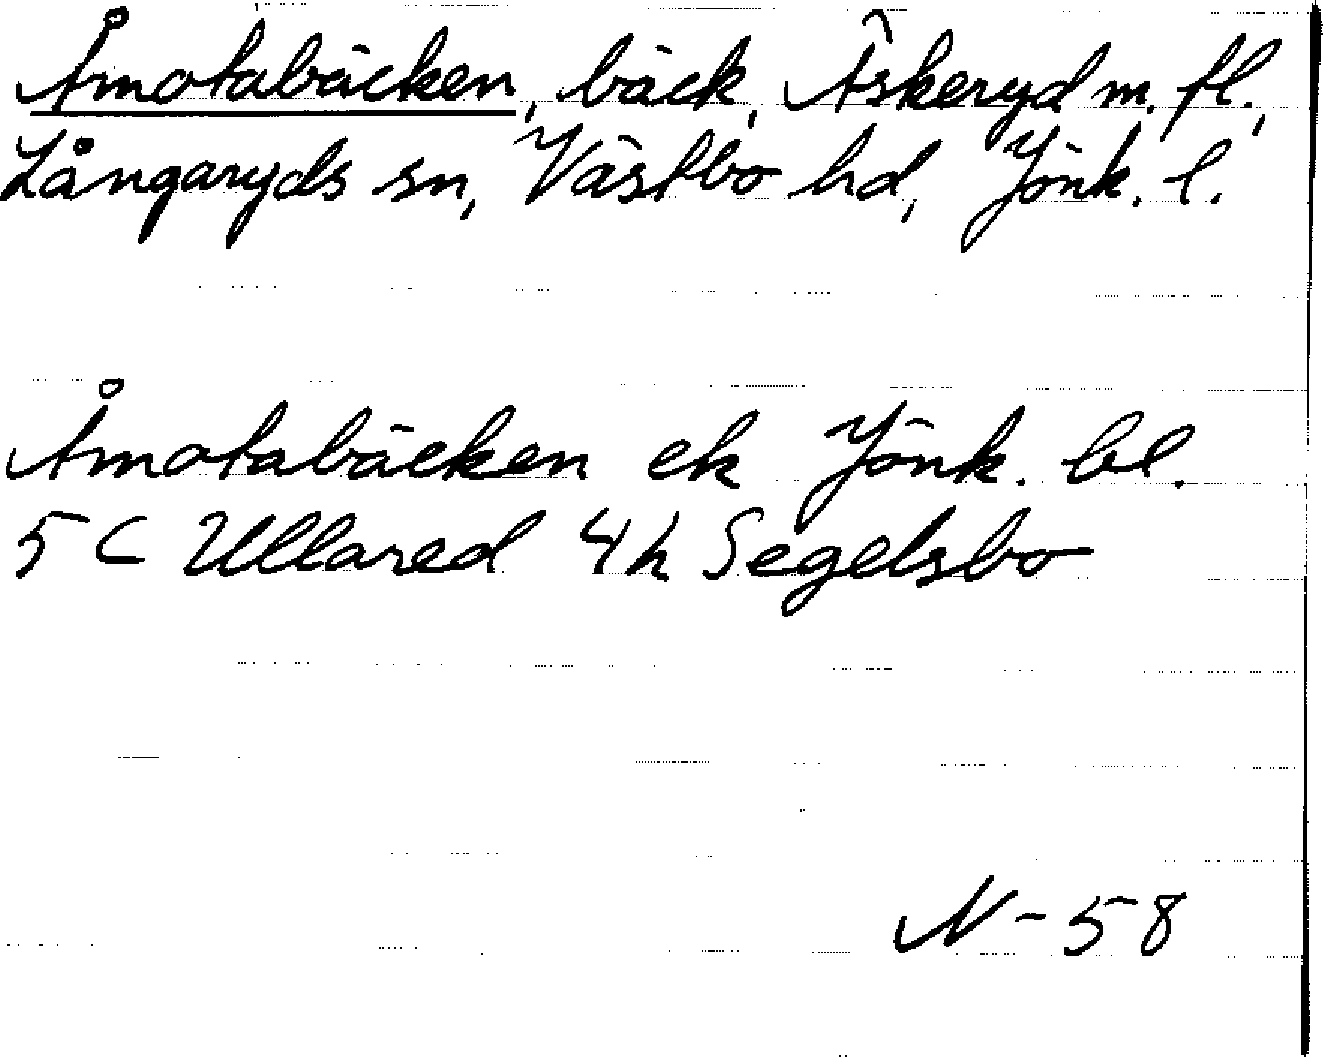 Åmotabäcken, bäck, Äskeryd m. fl.,
Långaryds sn, Västbo hd, Jönk. l.
Åmotabäcken ek Jönk. bl.
5 C Ullared 4h Segelsbo
N-58